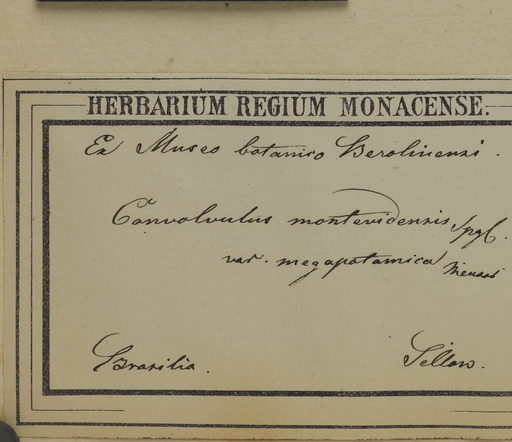 HERBARIUM REGIUM MONACENSE.
Ex Museo botanico Berolinensi.
Convolvulus montevidensis Spgl.
var. megapotamica
Brasilia. Sellow.